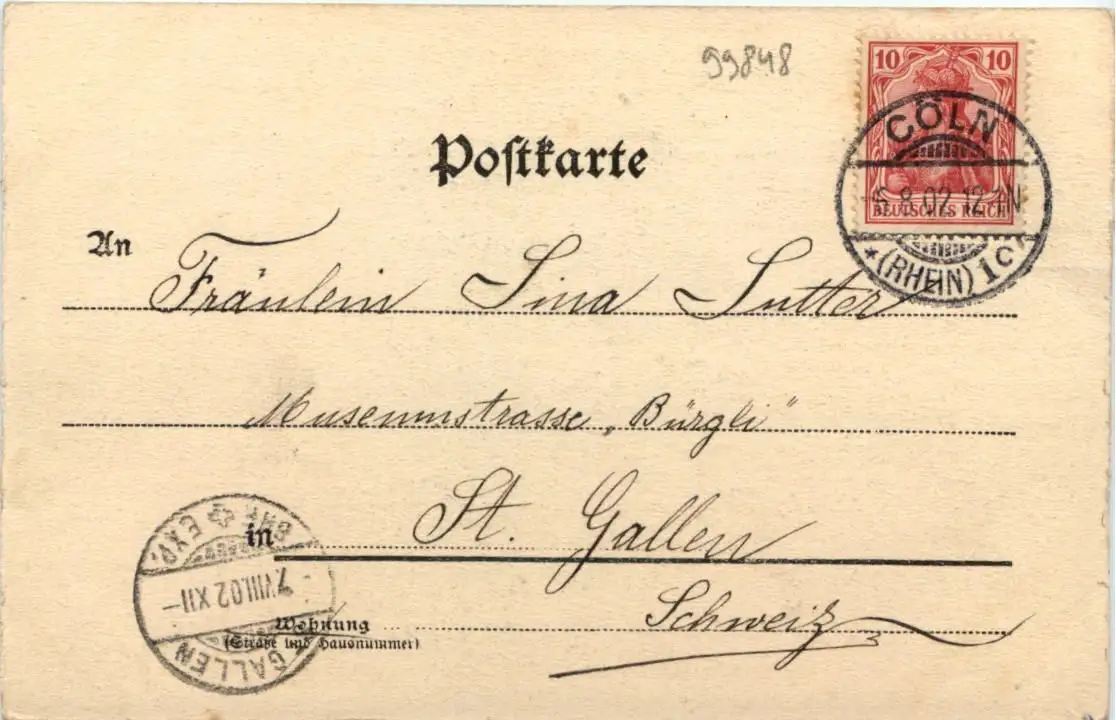 99848
10 10
DEUTSCHES REICH
CÖLN
8.02.12-1N
* (RHEIN) 1c
Postkarte
An Fräulein Lina Sutter
Museumstrasse „Bürgli"
in St. Gallen
Schweiz
Wohnung
(Straße und Hausnummer)
GALLEN
7.VIII.02 XII-
BHF. EXP.